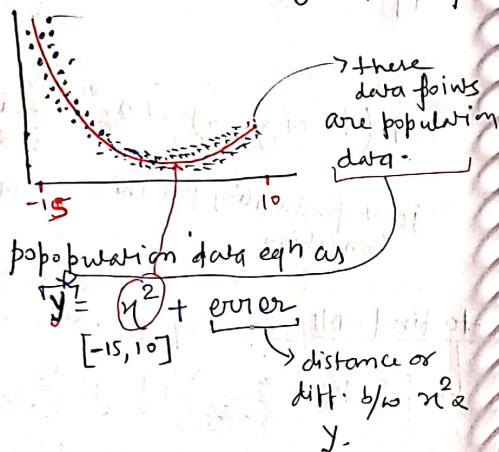 → these
data points
are population
data.
-15
10
popopulation data eqn as
y = x² + error
[-15, 10]
→ distance or
diff. b/w x² &
y.